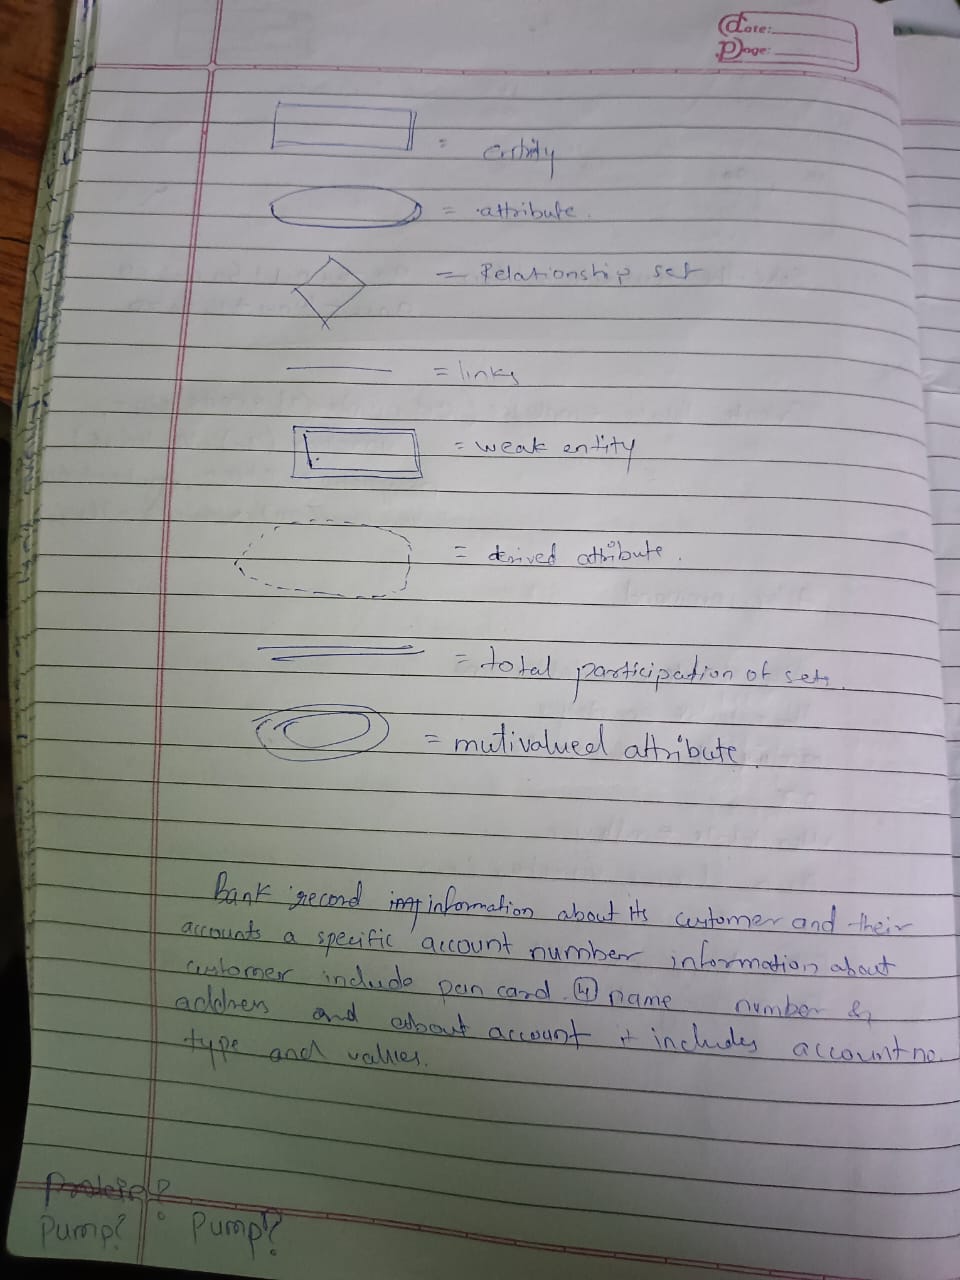 Date:
Page:
= entity
= attribute.
= Relationship set
= links
= weak entity
= derived attribute.
= total participation of sets.
= mutivalueed attribute.
Bank record information about its customer and their
accounts a specific account number information about
customer include pan card. name number &
address and about account it includes account no.
type and values.
Pump? Pump?